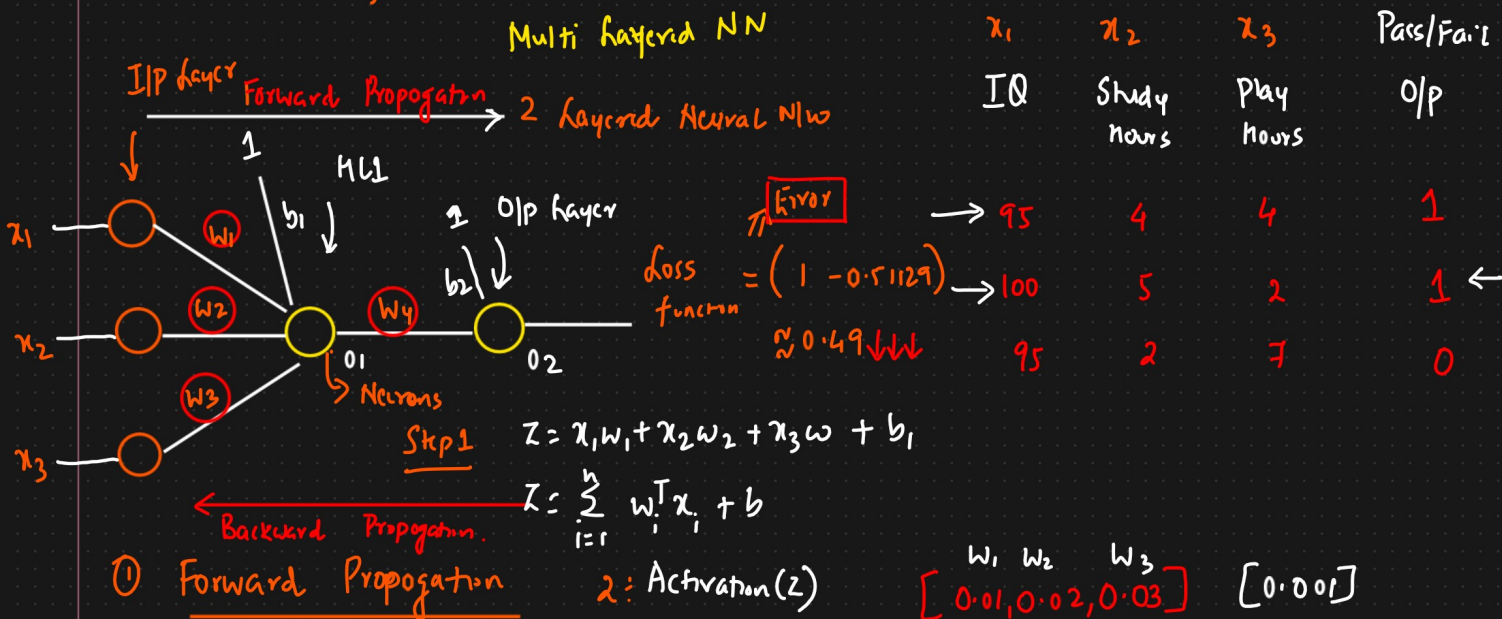 Multi Layered NN
I/P Layer
Forward Propogation
2 Layered Neural N/w
1
HL1
b1
1 O/P Layer
b2
x1
W1
x2
W2
W4
O1
O2
x3
W3
Neurons
Error
Loss function = (1 - 0.51129)
≈ 0.49
x1 x2 x3 Pass/Fail
IQ Study hours Play hours O/P
→ 95 4 4 1
→ 100 5 2 1 ←
95 2 7 0
Step 1
Z = x1w1 + x2w2 + x3w + b1
Z = n Σ i=1 wiT xi + b
Backward Propogation.
① Forward Propogation
2: Activation (Z)
W1 W2 W3
[0.01, 0.02, 0.03] [0.001]